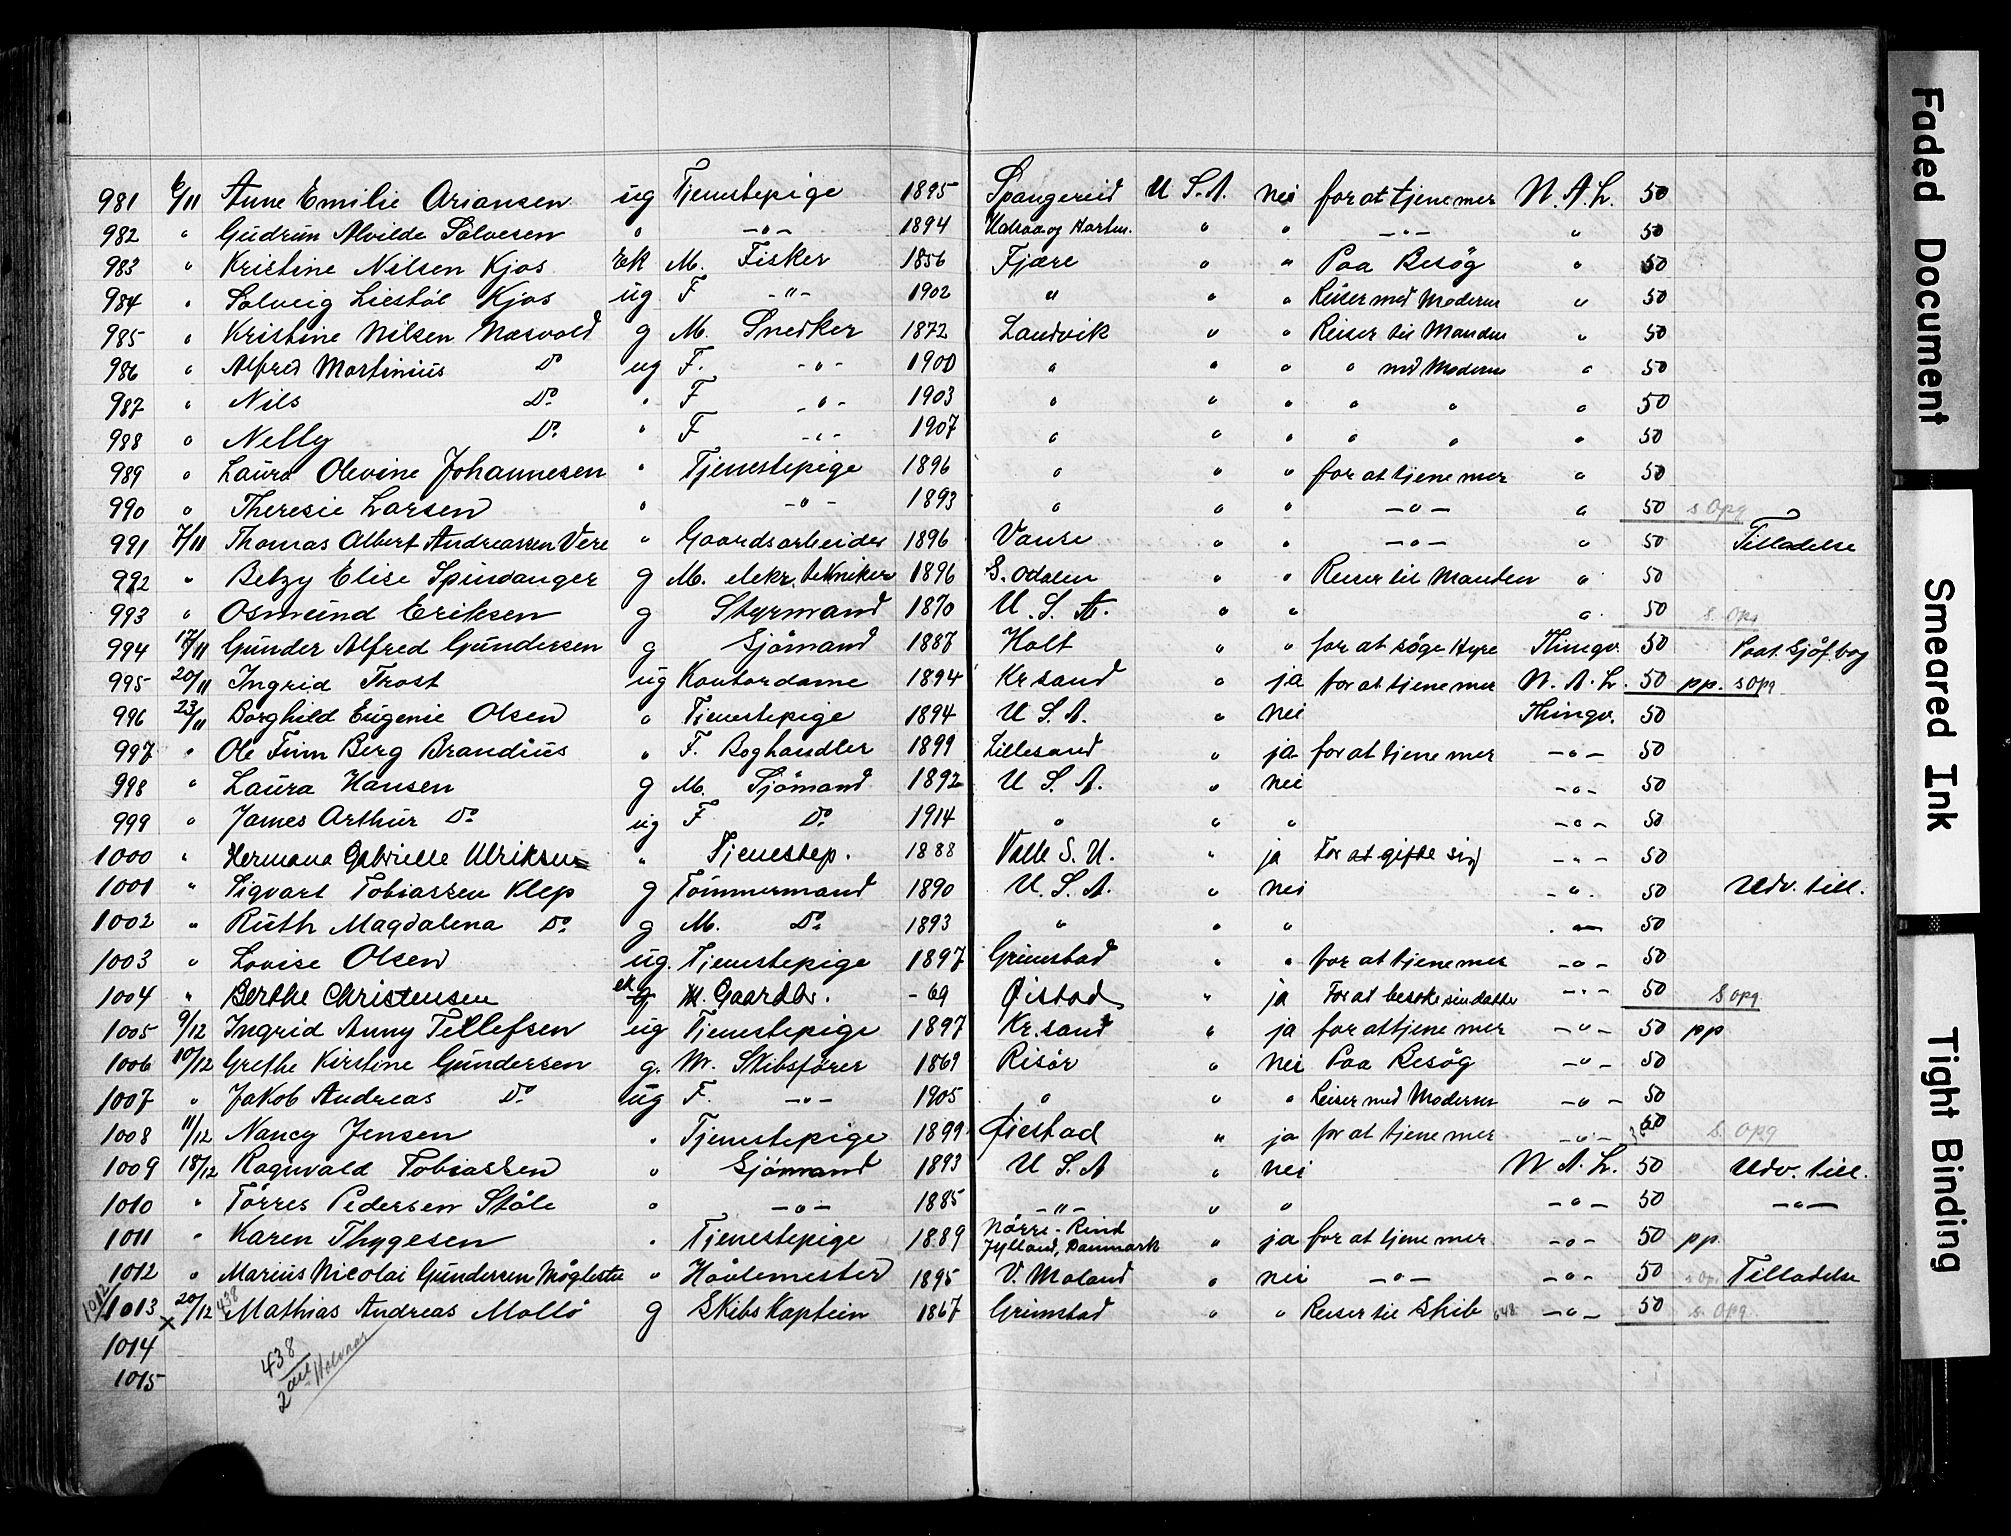 981 6/11 Anne Emilie Ariansen ug Tjenestepige 1895 Spangereid U. S. A. nei for at tjene mer N. A. L. 50
982 " Gudrun Alvilde Salvesen " -"- 1894 og " " -"- " 50
983 " Kristine Nilsen Kjos Ek M. Fisker 1856 Fjære " " Paa Besøg " 50
984 " Solveig Liestøl Kjos ug F -"- 1902 " " " Reiser med Moderen " 50
985 " Kristine Nilsen Næsvold g M. Snedker 1872 Landvik " " Reiser til Manden " 50
986 " Alfred Martinius Do ug F. -"- 1900 " " " " med Moderen " 50
987 " Nils Do. " F -"- 1903 " " " " " " 50
988 " Nelly Do. " F -"- 1907 " " " " " " 50
989 " Laura Olevine Johannesen " Tjenestepige 1896 " " " for at tjene mer " 50
990 " Theresie Larsen " -"- 1893 " " " -"- " 50 s Opg
991 7/11 Thomas Albert Andreassen Vere " Gaardsarbeider 1896 Vanse " " -"- " 50 Tilladelse
992 " Betzy Elise Spindanger g M. elekr. tekniker 1896 S. Odalen " " Reiser til Manden " 50
993 " Osmund Eriksen g Styrmand 1870 U. S. A. " " " 50 s. Opg
994 17/11 Gunder Alfred Gundersen g Sjömand 1887 Holt " " for at söge Hyre Thingv. 50 Paat. Sjöf. bog
995 20/11 Ingrid Frost ug Kontordame 1894 Kr sand " ja for at tjene mer N. A. L. 50 pp. s Opg
996 23/11 Borghild Eugenie Olsen " Tjenestepige 1894 U. S. A. " nei Thingv. 50
997 " Ole Finn Berg Brandius " F. Boghandler 1899 Lillesand " ja for at tjene mer -"- 50
998 " Laura Hansen g M. Sjömand 1892 U. S. A. " nei -"- 50
999 " James Arthur Do ug F Do. 1914 " " " -"- 50
1000 " Hermana Gabrielle Ulriksen " Tjenestep. 1888 Valle S. U. " ja For at gifte sig -"- 50
1001 " Sigvart Tobiassen Klep g Tömmermand 1890 U. S. A. " nei -"- 50 Udv. till.
1002 " Ruth Magdalena Do. g M. Do. 1893 " " " -"- 50
1003 " Lovise Olsen ug. Tjenestepige 1897 Grimstad " " for at tjene mer -"- 50
1004 " Berthe Christensen ek M. Gaardbr. -69 Øistad " ja For at besøke sin datter -"- 50 s opg.
1005 9/12 Ingrid Anny Tellefsen ug Tjenestepige 1897 Kr. sand " ja for at tjene mer -"- 50 pp
1006 10/12 Grethe Kirstine Gundersen g. M. Skibsfører 1869 Risör " nei Paa Besög -"- 50
1007 " Jakob Andreas Do. ug F. -"- 1905 " " " Reiser med Moderen -"- 50
1008 11/12 Nancy Jensen " Tjenestepige 1899 Øiestad " ja for at tjene mer -"- 50 s. opg
1009 18/12 Ragnvald Tobiassen " Sjömand 1893 U. S. A " nei N. A. L. 50 Udv. till.
1010 " Törres Pedersen Støle " -"- 1885 -"- " " -"- 50 -"-
1011 " Karen Thygesen " Tjenestepige 1889 Nörre-Rind Jylland, Danmark " ja for at tjene mer -"- 50 pp.
1012 " Marius Nicolai Gundersen Møglestue " Hovlemester 1895 V. Moland " nei -"- -"- 50 s Op. Tilladelse
1012 1013 x 20/12 438 Mathias Andreas Mollö g Skibs Kaptein 1867 Grimstad " " Reiser til Skib 648 -"- 50 s. Opg.
1014
1015
438
2